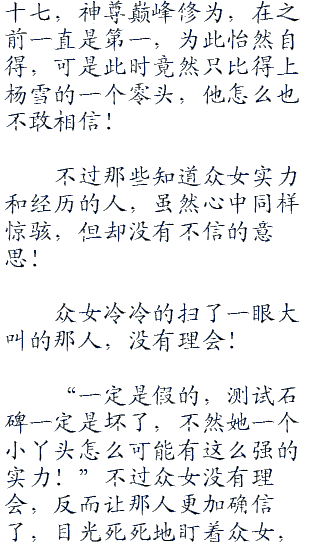 十七，神尊巅峰修为，在之
前一直是第一，为此怡然自
得，可是此时竟然只比得上
杨雪的一个零头，他怎么也
不敢相信！
不过那些知道众女实力
和经历的人，虽然心中同样
惊骇，但却没有不信的意
思！
众女冷冷的扫了一眼大
叫的那人，没有理会！
“一定是假的，测试石
碑一定是坏了，不然她一个
小丫头怎么可能有这么强的
实力！”不过众女没有理
会，反而让那人更加确信
了，目光死死地盯着众女，